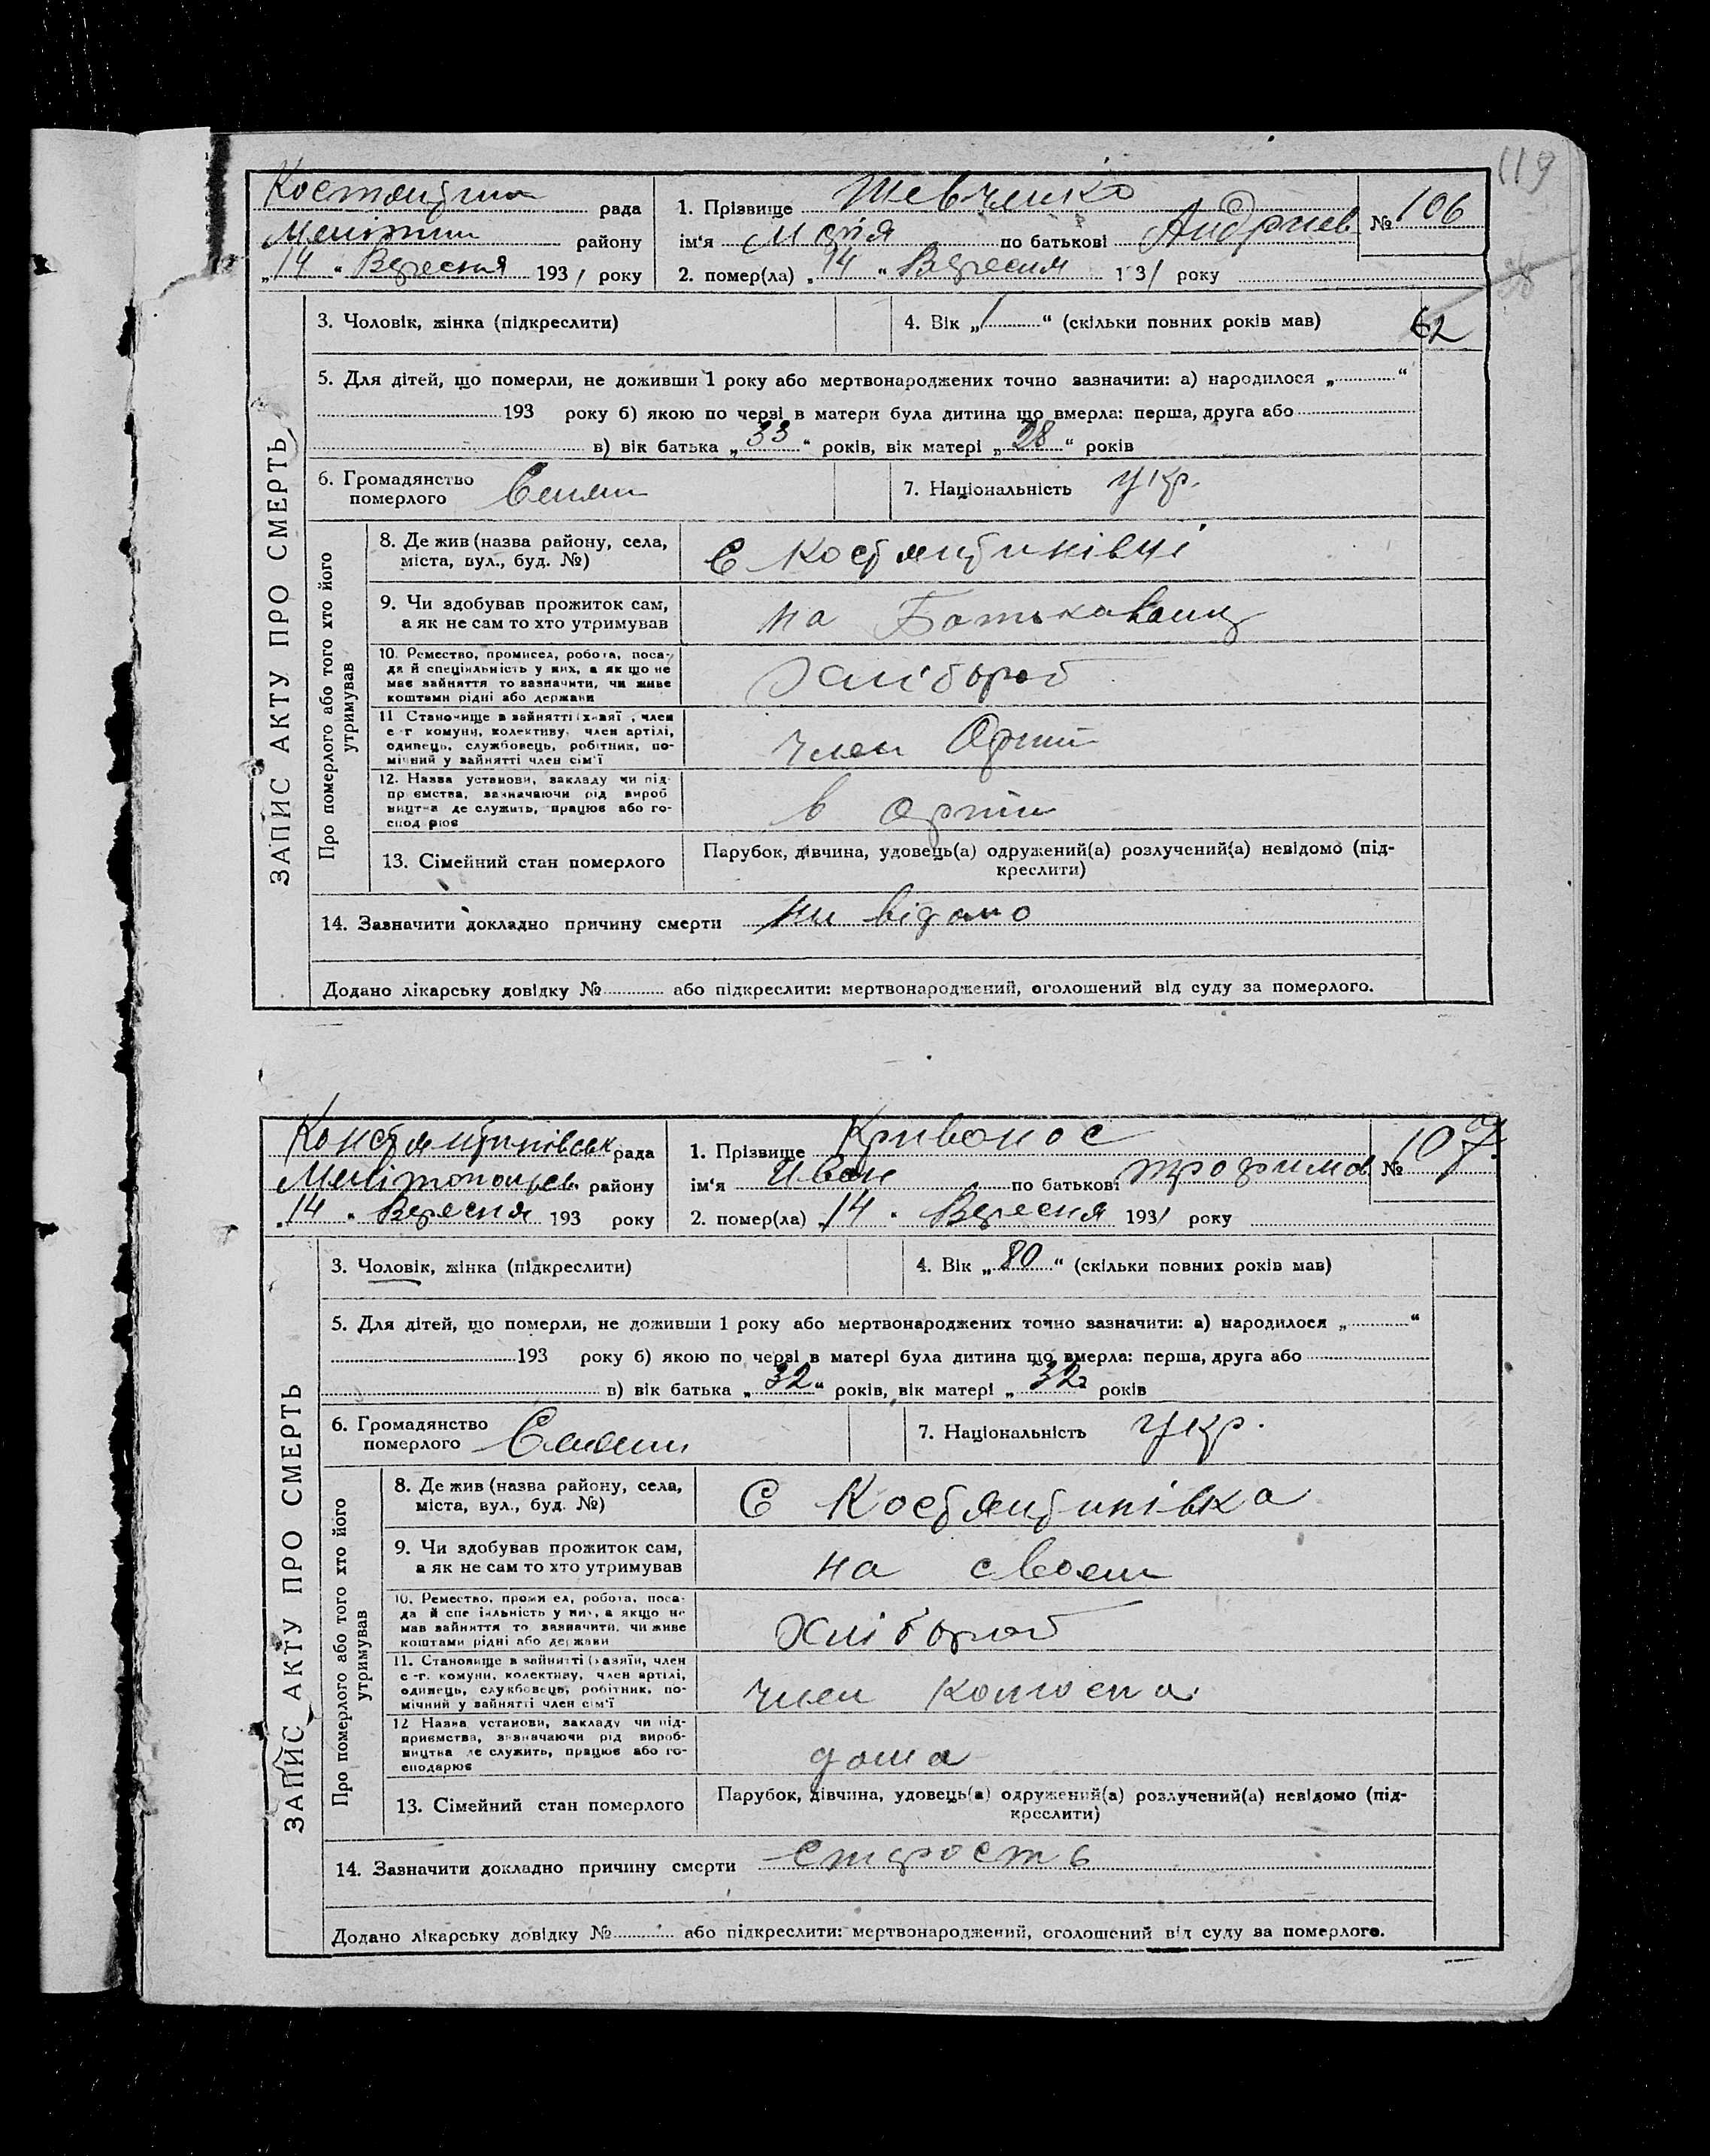 119
Костянтин рада 1. Прізвище Шевченко № 106
Мелітоп району ім'я Марія по батькові Андріев
„14" Вересня 1931 року 2. помер(ла) „14" Вересня 1931 року
3. Чоловік, жінка (підкреслити) 4. Вік „1" (скільки повних років мав) 62
5. Для дітей, що померли, не доживши 1 року або мертвонароджених точно зазначити: а) народилося „ "
193 року б) якою по черзі в матери була дитина що вмерла: перша, друга або
в) вік батька „33" років, вік матері „28" років
6. Громадянство
померлого
7. Національність Укр.
ЗАПИС АКТУ ПРО СМЕРТЬ
Про померлого або того хто його
утримував
8. Де жив (назва району, села,
міста, вул., буд. №)
С Костянтинівці
9. Чи здобував прожиток сам,
а як не сам то хто утримував
на
10. Ремество, промисел, робота, поса-
да й спеціяльність у них, а як що не
має зайняття то зазначити, чи живе
коштами рідні або держави
Хлібороб
11 Становище в зайнятті (хазяї , член
с-г комуни, колективу, член артілі,
одинець, службовець, робітник, по-
мічний у зайнятті член сім'ї
член Артіл
12. Назва установи, закладу чи під-
пр ємства, зазначаючи рід вироб
ництва де служить, працює або го-
спод рює
в Артіл
13. Сімейний стан померлого
Парубок, дівчина, удовець(а) одружений(а) розлучений(а) невідомо (під-
креслити)
14. Зазначити докладно причину смерти не відомо
Додано лікарську довідку № або підкреслити: мертвонароджений, оголошений від суду за померлого.
Констянтинівськ рада 1. Прізвище Кривонос № 107
Мелітопольськ району ім'я Иван по батькові Трофимов
„14" Вересня 193 року 2. помер(ла) „14" Вересня 1931 року
3. Чоловік, жінка (підкреслити) 4. Вік „80" (скільки повних років мав)
5. Для дітей, що померли, не доживши 1 року або мертвонароджених точно зазначити: а) народилося „ "
193 року б) якою по черзі в матері була дитина що вмерла: перша, друга або
в) вік батька „32" років, вік матері „32" років
6. Громадянство
померлого
7. Національність Укр.
ЗАПИС АКТУ ПРО СМЕРТЬ
Про померлого або того хто його
утримував
8. Де жив (назва району, села,
міста, вул., буд. №)
С Костянтинівка
9. Чи здобував прожиток сам,
а як не сам то хто утримував
на своем
10. Ремество, проми ел, робота, поса-
да й спе іяльність у них, а якщо не
мав зайняття то зазначити, чи живе
коштами рідні або держави
Хлібороб
11. Становище в зайнятті (хазяїн, член
с-г. комуни, колективу, член артілі,
одинець, службовець, робітник, по-
мічний у зайнятті член сім'ї
член
12 Назва установи, закладу чи під-
приємства, зазначаючи рід вироб-
ництва де служить, працює або го-
сподарює
дома
13. Сімейний стан померлого
Парубок, дівчина, удовець(а) одружений(а) розлучений(а) невідомо (під-
креслити)
14. Зазначити докладно причину смерти старость
Додано лікарську довідку № або підкреслити: мертвонароджений, оголошений від суду за померлого.